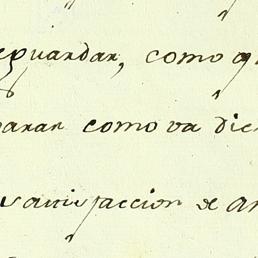 guardar, como q
paran como va dich
satisfaccion de an